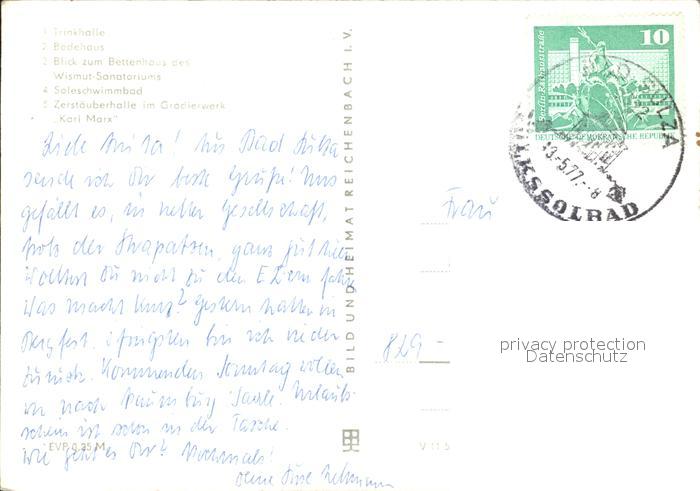 1 Trinkhalle
2 Badehaus
3 Blick zum Bettenhaus des
Wismut-Sanatoriums
4 Soleschwimmbad
5 Zerstäuberhalle im Gradierwerk
„Karl Marx"
Liebe Anita! Aus Bad Sulza
sende ich Dir beste Grüße! Uns
gefällt es, in netter Gesellschaft,
trotz der Strapatzen, ganz gut hier.
Wolltest Du nicht zu den Eltern
Was macht Kurt? Gestern hatten
Bergfest. Pfingsten bin ich wieder
zurück. Kommenden Sonntag wollen
wir nach Naumburg Saale. Urlaub-
schein ist schon in der Tasche.
Wie geht es Dir? Nochmals!
Deine
EVP 0,25 M
BILD UND HEIMAT REICHENBACH I. V.
V 11 5
Frau
829
10
Berlin-Rathausstraße
DEUTSCHE DEMOKRATISCHE REPUBLIK
SULZA
13.-5.77.-8
VOLKSSOLBAD
privacy protection
Datenschutz